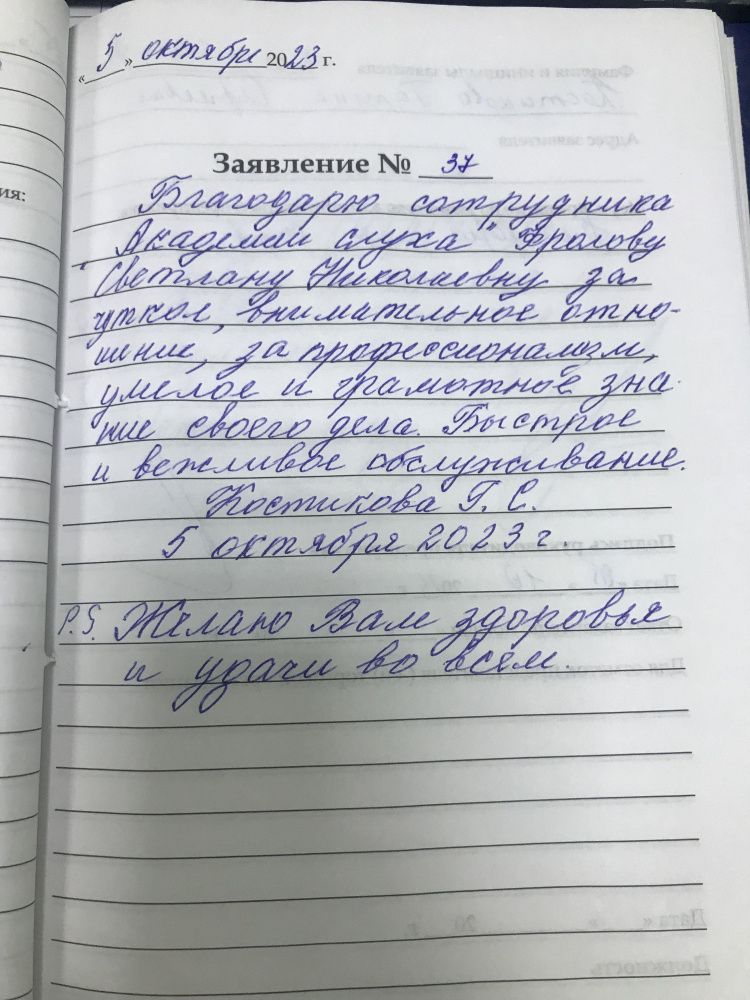 « 5 » октября 2023 г.
Заявление № 37
Благодарю сотрудника
"Академии слуха" Фролову
Светлану Николаевну за
чуткое, внимательное отно-
шение, за профессионализм,
умелое и грамотное зна-
ние своего дела. Быстрое
и вежливое обслуживание.
Костикова Г. С.
5 октября 2023 г.
P.S. Желаю Вам здоровья
и удачи во всём.
ия: